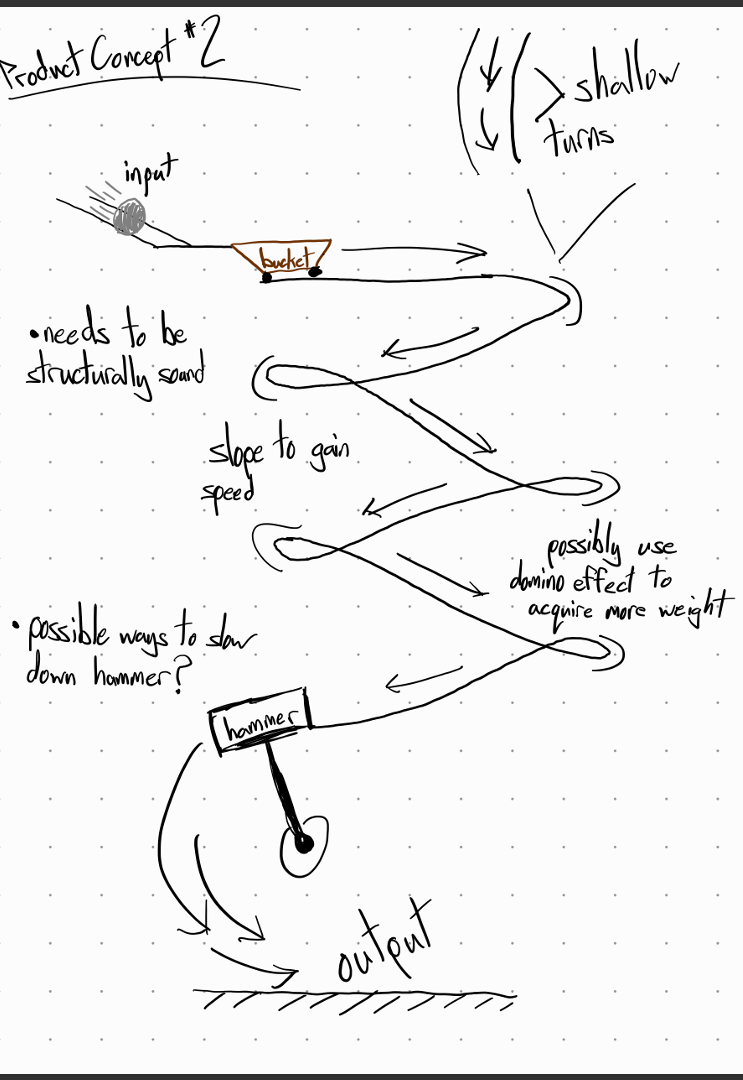 Product Concept #2
shallow
turns
input
bucket
•needs to be
structurally sound
slope to gain
speed
possibly use
domino effect to
acquire more weight
• possible ways to slow
down hammer?
hammer
output